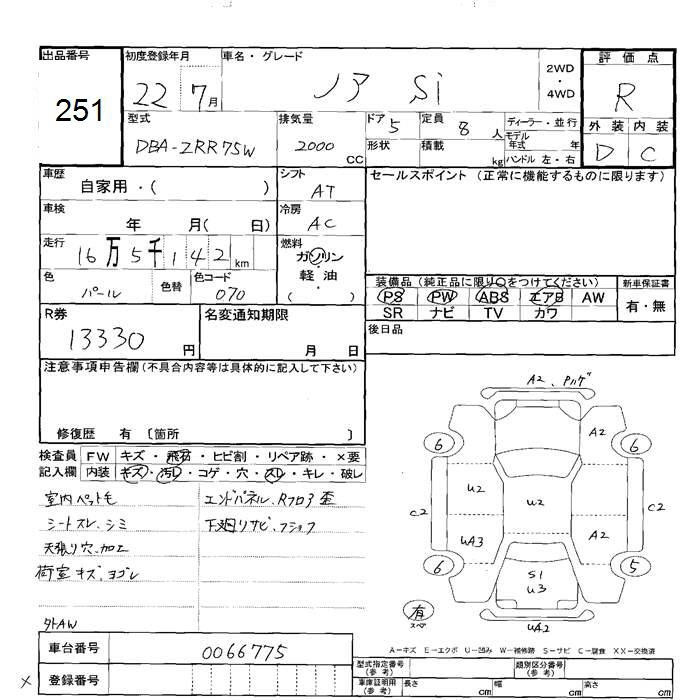 出品番号 初度登録年月 車名・グレード 評価点
251 22 7月 ノア Si 2WD ・ 4WD R
型式 排気量 ドア 5 定員 8人 ディーラー・並行 外装 内装
DBA-ZRR75W 2000 CC 形状 積載 kg モデル年式 年 ハンドル 左・右 D C
車歴 シフト セールスポイント (正常に機能するものに限ります)
自家用・( ) AT
車検 冷房
年 月( 日) AC
走行 燃料
16万5千142km ガソリン
・
軽油
( )
色 色替 色コード 装備品 (純正品に限り○をつけてください) 新車保証書
パール 070 PS PW ABS エアB AW 有・無
SR ナビ TV カワ
R券 名変通知期限 後日品
13330円 月 日
注意事項申告欄(不具合内容等は具体的に記入して下さい)
修復歴 有 〔箇所 〕
検査員 FW キズ・飛石・ヒビ割・リペア跡・×要
記入欄 内装 キズ・汚レ・コゲ・穴・スレ・キレ・破レ
室内ペット毛 エンドパネル、Rフロア歪
シートスレ、シミ 下廻リサビ、
天張り穴、加工
荷室キズ、ヨゴレ
外AW
A2、
6 A2 6
U2 U2
C2 C2
UA3 A2
6 S1 5
U3
有 スペ UA2
A-キズ E-エクボ U-凹み W-補修跡 S-サビ C-腐食 XX-交換済
車台番号 0066775
× 登録番号
型式指定番号(参考) 類別区分番号(参考)
車庫証明用(参考) 長さ cm 幅 cm 高さ cm